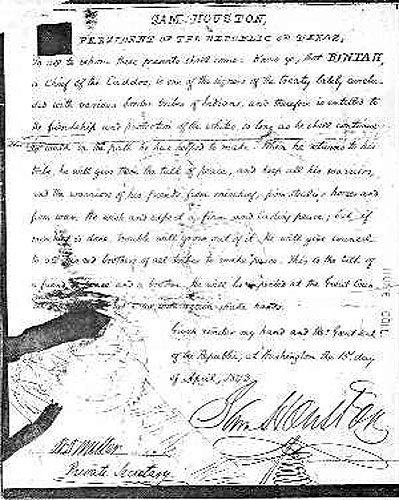 SAM. HOUSTON,
PRESIDENT OF THE REPUBLIC OF TEXAS,
To all to whom these presents shall come: Know ye, that BINTAH,
a Chief of the Caddos, is one of the signers of the treaty lately conclu-
ded with various border tribes of Indians, and therefore is entitled to
the friendship and protection of the whites, so long as he shall continue
to walk in the path he has helped to make. When he returns to his
tribe, he will give them the talk of peace, and keep all his warriors,
and the warriors of his friends, from mischief, from stealing horses and
from war. We wish and expect a firm and lasting peace; but if
mischief is done, trouble will grow out of it. He will give council
to all his red brothers of all tribes to make peace. This is the talk of
a friend and a brother. He will be expected at the Great Coun-
shake hands.
Given under my hand and the Great Seal
of the Republic, at Washington the 1st day
of April, 1843.
Sam Houston
W.D. Miller
Private Secretary.